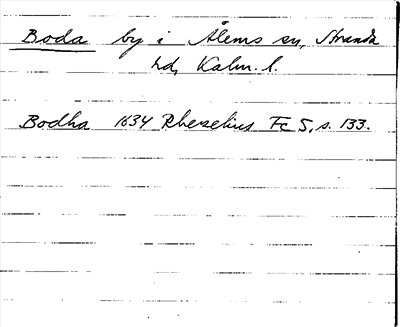 Boda by i Ålems sn, Stranda
hd, Kalm. l.
Bodha 1634 Rhezelius Fc 5, s. 133.